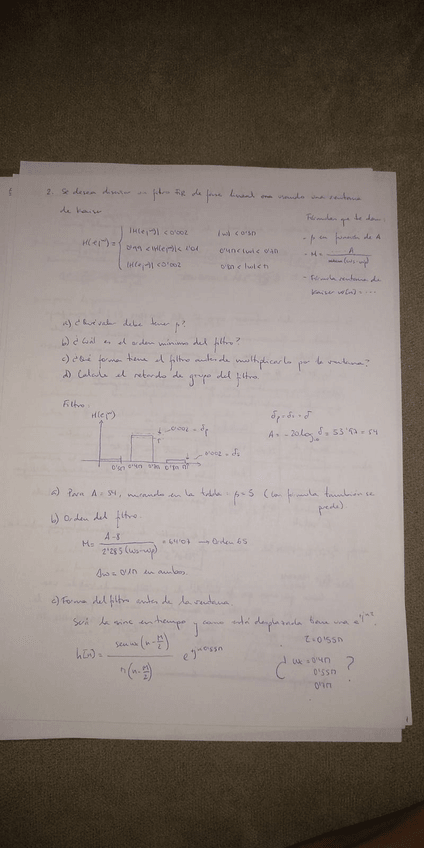 2. Se desea diseñar un filtro FIR de fase lineal usando una ventana
de Kaiser
Fórmulas que te dan:
|H(e^jω)| < 0'002 |ω| < 0'3π
H(e^jω) = 0'99 < |H(e^jω)| < 1'01 0'4π < |ω| < 0'7π
|H(e^jω)| < 0'002 0'8π < |ω| < π
- β en función de A
- M =
- Fórmula ventana de
Kaiser w(n) = ....
a) ¿Qué valor debe tener β?
b) ¿Cuál es el orden mínimo del filtro?
c) ¿Qué forma tiene el filtro antes de multiplicarlo por la ventana?
d) Calcule el retardo de grupo del filtro.
Filtro:
H(e^jω)
0'002 = δp
0'002 = δs
A = -20log10 δ = 53'97 ≈ 54
a) Para A = 54, mirando en la tabla β = 5 (con fórmula también se
puede).
b) Orden del filtro.
M = A-8 / 2'285(ωs-ωp) = 64'07 → Orden 65
Δω = 0'1π en ambos.
c) Forma del filtro antes de la ventana.
Será la sinc en tiempo y como está desplazada tiene una e^
h[n] = sen ωc(n - M/2) / π(n - M/2) e^j 0'55π
¿ ωc = 0'4π
0'55π
?